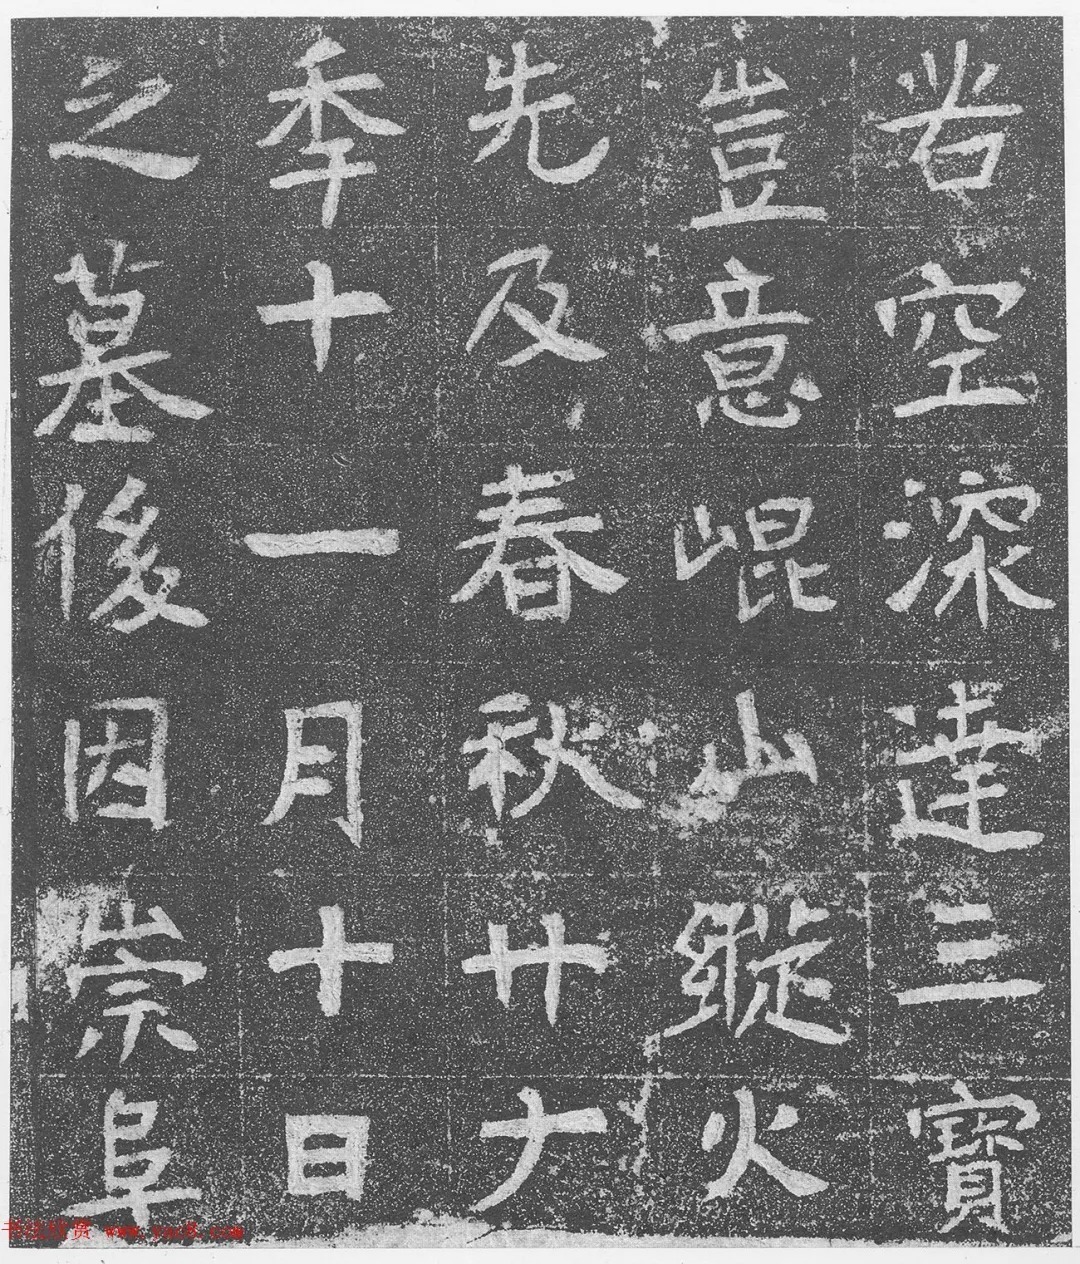 苦空深達三寶
豈意崐山縱火
先及春秋廿
秊十一月十日
之墓後因崇阜
书法欣赏